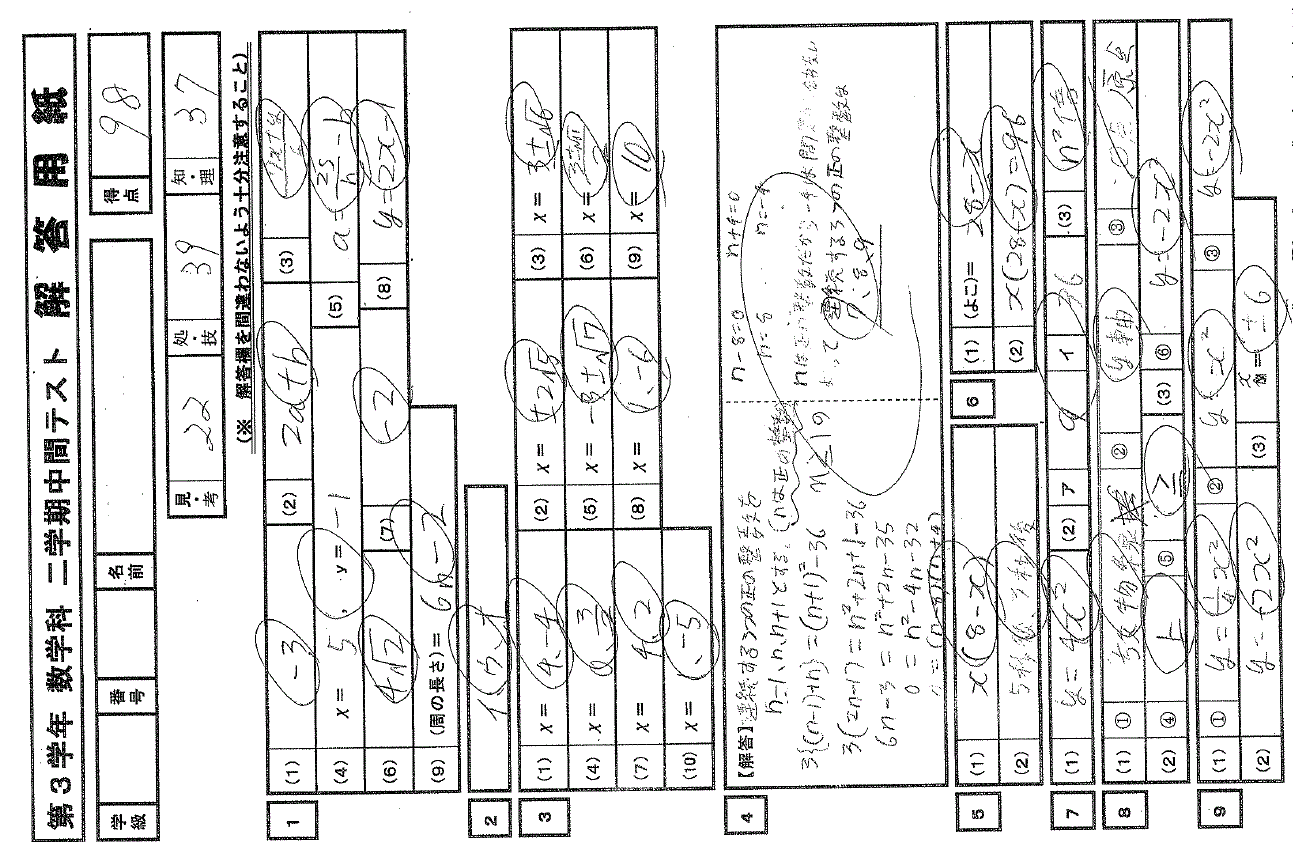 第3学年 数学科 二学期中間テスト 解答用紙
学級
番号
名前
得点
98
見・考
22
処・技
39
知・理
37
(※ 解答欄を間違わないよう十分注意すること)
1
(1) -3
(2) 2a+b
(3)
(4) x= 5 , y= -1
(5) a= 2S/h - b
(6) 4√2
(7) -2
(8) y=2x-1
(9) (周の長さ)= 6n-2
2
3
(1) x= 4,-4
(2) x= ±2√5
(3) x= 3±√6
(4) x= 0, 3/2
(5) x= -3±√7
(6) x=
(7) x= 4,2
(8) x= 1,-6
(9) x= 10
(10) x= 1,-5
4
【解答】連続する3つの正の整数を
n-1, n, n+1とする。(nは正の整数)
3{(n-1)+n}=(n+1)²-36
3(2n-1)=n²+2n+1-36
6n-3=n²+2n-35
0=n²-4n-32
0=(n-8)(n+4)
n-8=0 n+4=0
n=8 n=-4
nは正の整数だから
よって 連続する3つの正の整数は
7,8,9
5
(1) x(8-x)
(2) 5秒後, 3秒後
6
(1) (よこ)= 28-x
(2) x(28-x)=96
7
(1) y=4x²
(2) ア 9 イ 36
(3) n²倍
8
(1) ① 放物線
② y軸
③ 原点
(2) ④ 上
⑤ ≧
(3) ⑥ y=-2x²
9
(1) ① y=1/4x²
② y=-x²
③ y=-2x²
(2) y=-2x²
(3) x= ±6